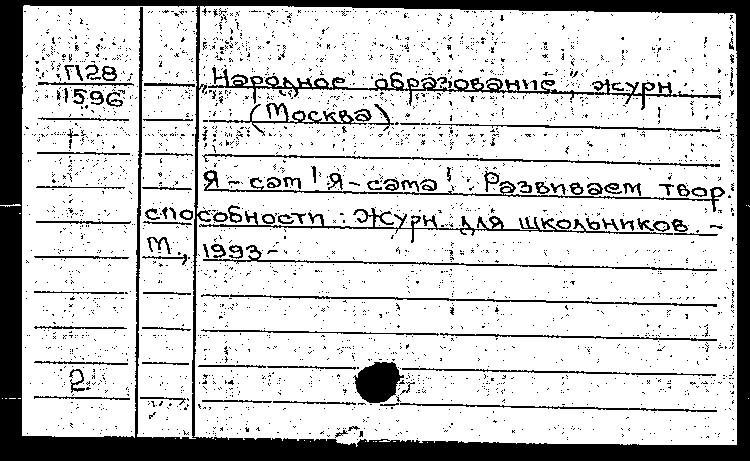 П28
1596
"Народное образование", журн.
(Москва)
Я-сам! Я-сама! : Развиваем твор.
способности : Журн. для школьников. -
М., 1993-
2